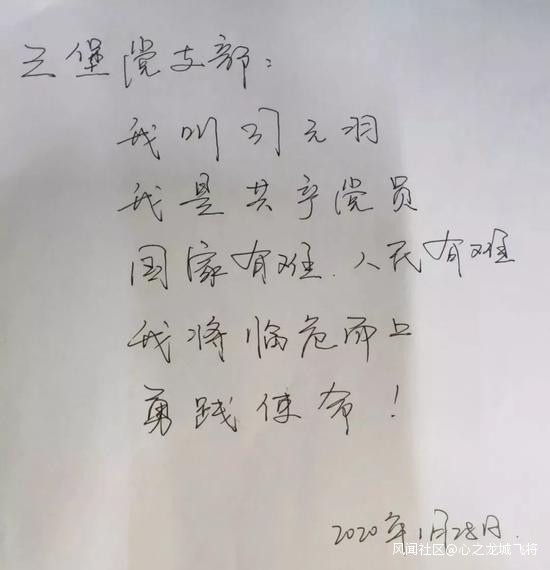 三堡党支部:
我叫司元羽
我是共产党员
国家有难、人民有难
我将临危而上
勇践使命!
2020年1月28日.
风闻社区@心之龙城飞将